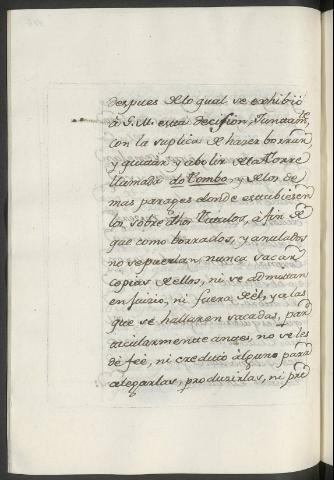 despues de lo qual se exhibiò
à S. M. esta decision, Juntam.te
con la suplica de hazer borrar,
y quitar, y abolir de la Torre
llamada do Tombo, y de los de
mas parages donde estubiesen
los sobre dhos Titulos, à fin de
que como borrados, y anulados
no se puedan, nunca sacar
copias de ellos, ni se admitan
en juizio, ni fuera de èl, y a las
que se hallaren sacadas, par
ticularmente antes, no se les
dè feè, ni credito alguno para
alegarlas, produzirlas, ni pre